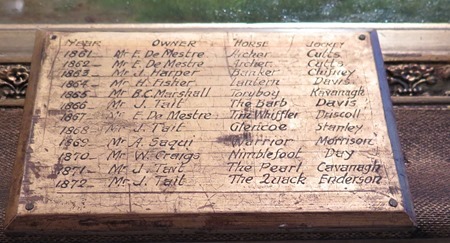 YEAR OWNER HORSE JOCKEY
1861 - Mr E. De Mestre Archer Cutts
1862 - Mr E. De Mestre Archer. Cutts
1863 - Mr J. Harper Banker Chifney
1864 - Mr H. Fisher Lantern Davis
1865 - Mr B.C. Marshall Toryboy Kavanagh
1866 Mr J. Tait The Barb Davis
1867 Mr E. De Mestre Tim Whiffler Driscoll
1868 - Mr J. Tait Glencoe Stanley
1869 Mr A. Saqui Warrior Morrison
1870 - Mr W. Craig Nimblefoot Day
1871 - Mr J. Tait The Pearl Cavanagh
1872 - Mr J. Tait The Quack Enderson